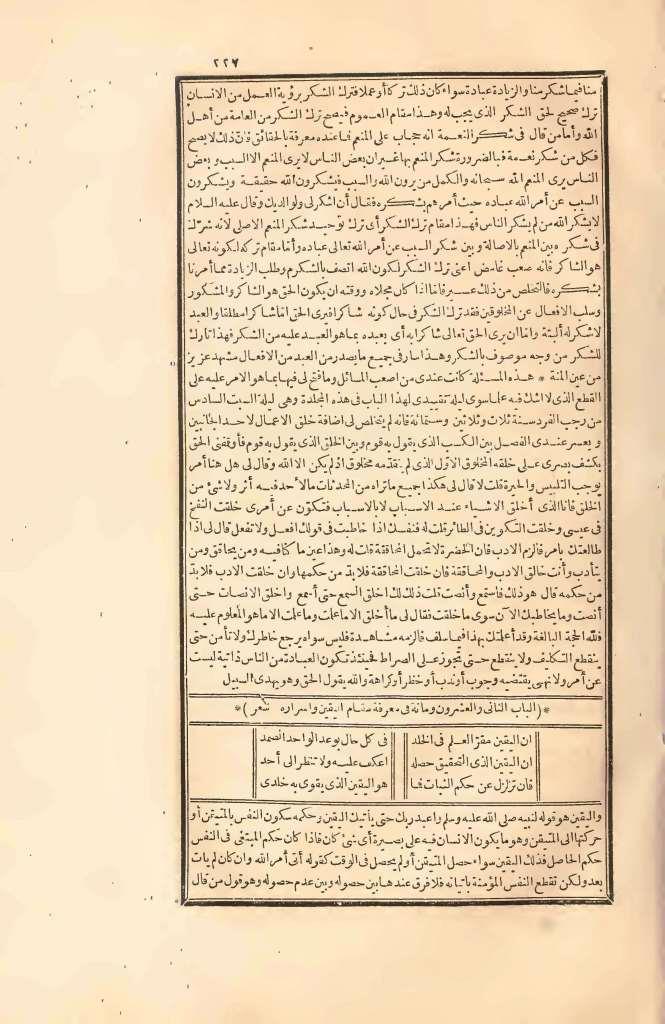 ٢٢٦
منا فيما شكر منا والزيادة عبادة سواء كان ذلك تركا أو عملا فترك الشكر برؤية العمل من الانسان
ترك صحيح لحق الشكر الذي يجب له وهذا مقام العموم فيصح ترك الشكر من العامة من أهل
الله وأما من قال في شكر النعمة انه حجاب على المنعم فما عنده معرفة بالحقائق فان ذلك لا يصح
فكل من شكر نعمة فبالضرورة شكر المنعم بها غير ان بعض الناس لا يرى المنعم الا السبب وبعض
الناس يرى المنعم الله سبحانه والكمل من يرون الله والسبب فيشكرون الله حقيقة ويشكرون
السبب عن أمر الله عباده حيث أمرهم بشكره فقال أن اشكر لي ولوالديك وقال عليه السلام
لا يشكر الله من لم يشكر الناس فهذا مقام ترك الشكر أي ترك توحيد شكر المنعم الاصلي لانه شرك
في شكره بين المنعم بالاصالة وبين شكر السبب عن أمر الله تعالى عباده وأما مقام تركه لكونه تعالى
هو الشاكر فانه صعب غامض اعني ترك الشكر لكون الله اتصف بالشكر وطلب الزيادة مما أمرنا
بشكره فالتخلص من ذلك عسير فاما اذا كان مجلاه ووقته ان يكون الحق هو الشاكر والمشكور
وسلب الافعال عن المخلوقين فقد ترك الشكر في حال كونه شاكرا فيرى الحق اما شاكرا مطلقا والعبد
لا شكر له ألبتة واما ان يرى الحق تعالى شاكرا به أي بعبده بما هو العبد عليه من الشكر فهذا تارك
للشكر من وجه موصوف بالشكر وهذا سار في جميع ما يصدر من العبد من الافعال مشهد عزيز
من عين المنة * هذه المسئلة كانت عندي من اصعب المسائل وما فتح لي فيها بما هو الامر عليه على
القطع الذي لا اشك فيه علما سوى ليلة تقييدي لهذا الباب في هذه المجلدة وهي ليلة السبت السادس
من رجب الفرد سنة ثلاث وثلاثين وستمائة فانه لم يتخلص لي اضافة خلق الاعمال لاحد الجانبين
ويعسر عندي الفصل بين الكسب الذي يقول به قوم وبين الخلق الذي يقول به قوم فأوقفني الحق
بكشف بصري على خلقه المخلوق الاول الذي لم يتقدمه مخلوق اذ لم يكن الا الله وقال لي هل هنا أمر
يوجب التلبيس والحيرة قلت لا قال لي هكذا جميع ما تراه من المحدثات ما لاحد فيه أثر ولا شئ من
الخلق فانا الذي أخلق الاشياء عند الاسباب لا بالاسباب فتتكون عن أمري خلقت النفخ
في عيسى وخلقت التكوين في الطائر قلت له فنفسك اذا خاطبت في قولك افعل ولا تفعل قال لي اذا
طالعتك بامر فالزم الادب فان الحضرة لا تحمل المحاققة قلت له وهذا عين ما كنا فيه ومن يحاقق ومن
يتأدب وأنت خالق الادب والمحاققة فان خلقت المحاققة فلا بد من حكمها وان خلقت الادب فلا بد
من حكمه قال هو ذلك فاستمع وأنصت قلت ذلك لك اخلق السمع حتى أسمع واخلق الانصات حتى
أنصت وما يخاطبك الآن سوى ما خلقت فقال لي ما أخلق الا ما علمت وما علمت الا ما هو المعلوم عليه
فلله الحجة البالغة وقد أعلمتك بهذا فيما سلف فالزمه مشاهدة فليس سواه يرجع خاطرك ولا تأمن حتى
ينقطع التكليف ولا ينقطع حتى تجوز على الصراط فحينئذ تكون العبادة من الناس ذاتية ليست
عن أمر ولا نهي يقتضيه وجوب أو ندب أو حظر أو كراهة والله يقول الحق وهو يهدي السبيل
* (الباب الثاني والعشرون ومائة في معرفة مقام اليقين واسراره شعر) *
ان اليقين مقر العلم في الخلد في كل حال بوعد الواحد الصمد
ان اليقين الذي التحقيق حصله اعكف عليه ولا تنظر الى أحد
فان تزلزل عن حكم الثبات فما هو اليقين الذي يقوى به خلدي
واليقين هو قوله لنبيه صلى الله عليه وسلم واعبد ربك حتى يأتيك اليقين وحكمه سكون النفس بالمتيقن أو
حركتها الى المتيقن وهو ما يكون الانسان فيه على بصيرة أي شئ كان فاذا كان حكم المبتغى في النفس
حكم الحاصل فذلك اليقين سواء حصل المتيقن أو لم يحصل في الوقت كقوله أتى أمر الله وان كان لم يات
بعد ولكن تقطع النفس المؤمنة باتيانه فلا فرق عندها بين حصوله وبين عدم حصوله وهو قول من قال